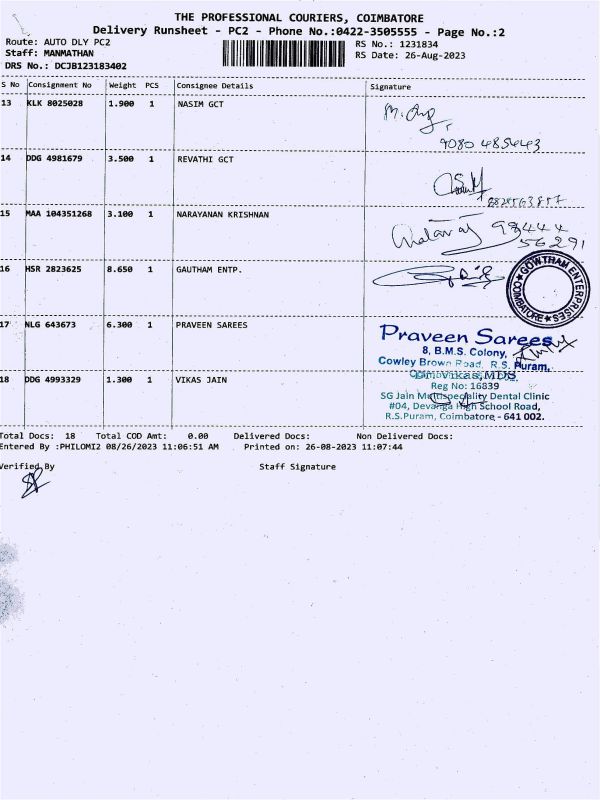 THE PROFESSIONAL COURIERS, COIMBATORE
Delivery Runsheet - PC2 - Phone No.:0422-3505555 - Page No.:2
Route: AUTO DLY PC2
RS No.: 1231834
Staff: MANMATHAN
RS Date: 26-Aug-2023
DRS No.: DCJB123183402
S No Consignment No Weight PCS Consignee Details Signature
13 KLK 8025028 1.900 1 NASIM GCT
9080 485443
14 DDG 4981679 3.500 1 REVATHI GCT
15 MAA 104351268 3.100 1 NARAYANAN KRISHNAN
98444
56291
16 HSR 2823625 8.650 1 GAUTHAM ENTP.
GOWTHAM ENTERPRISES
COIMBATORE
17 NLG 643673 6.300 1 PRAVEEN SAREES
Praveen Sarees
8, B.M.S. Colony,
Cowley Brown Road, R.S. Puram,
18 DDG 4993329 1.300 1 VIKAS JAIN
Dr. Vikas, MDS
Reg No: 16839
SG Jain Multispeciality Dental Clinic
#04, Devanga High School Road,
R.S.Puram, Coimbatore - 641 002.
Total Docs: 18 Total COD Amt: 0.00 Delivered Docs: Non Delivered Docs:
Entered By :PHILOMI2 08/26/2023 11:06:51 AM Printed on: 26-08-2023 11:07:44
Verified By Staff Signature